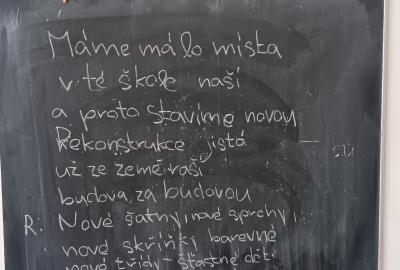 Máme málo místa
v té škole naší
a proto stavíme novou
Rekonstrukce jistá
už ze země raší
budova za budovou
R: Nové šatny, nové sprchy,
nové skříňky barevné
nové třídy - šťastné děti